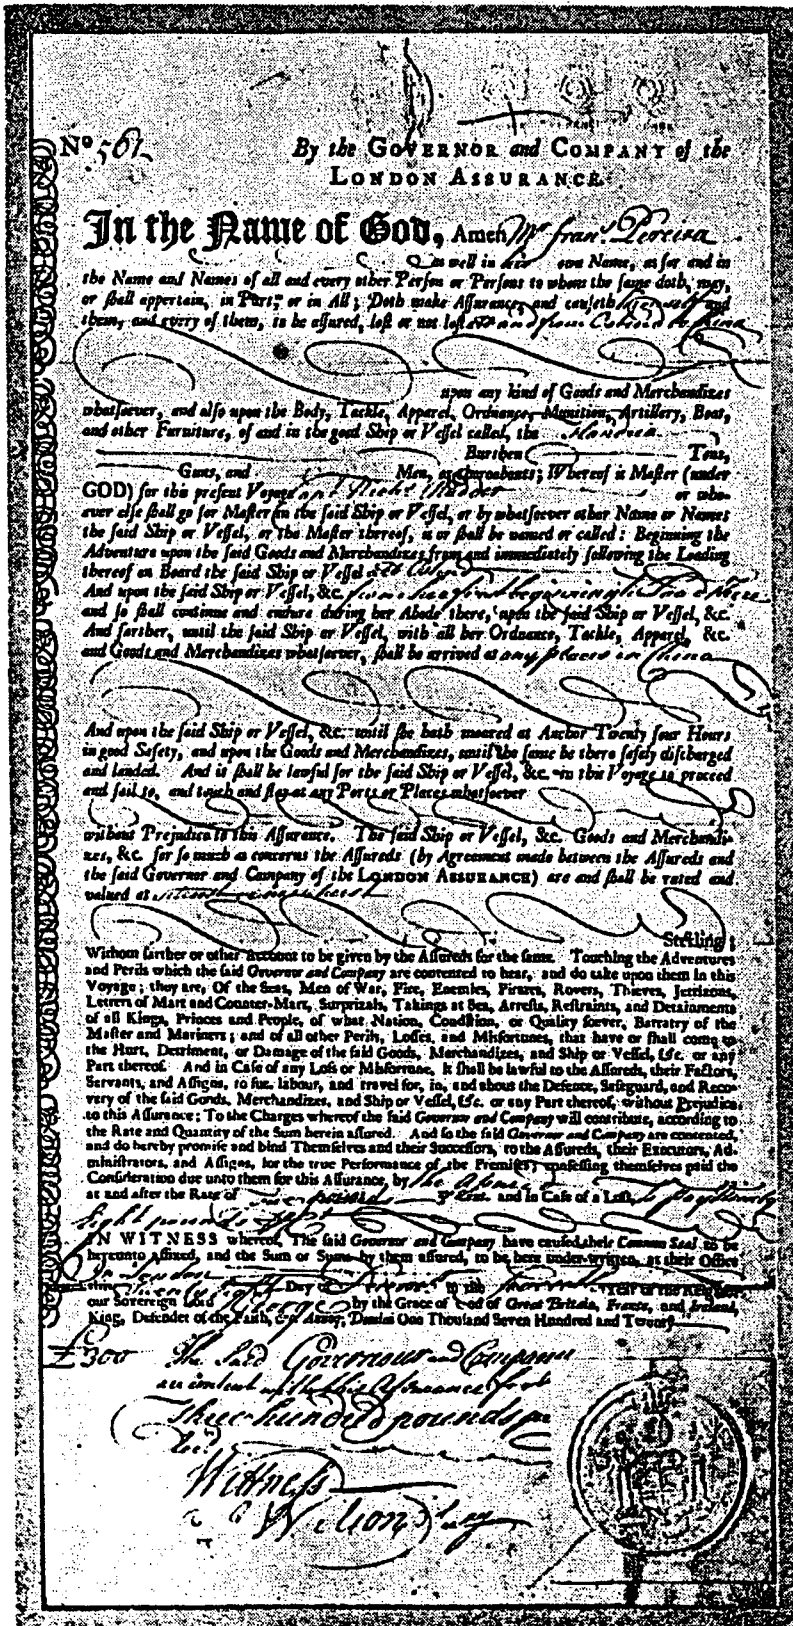 No 561
By the GOVERNOR and COMPANY of the
LONDON ASSURANCE.
In the Name of God, Amen Mr. fran.s Pereira
as well in own Name, as for and in
the Name and Names of all and every other Perſon or Perſons to whom the ſame doth, may,
or ſhall appertain, in Part, or in All; Doth make Aſſurance, and cauſeth and
them, and every of them, to be aſſured, loſt or not loſt at and from to China
upon any kind of Goods and Merchandizes
whatſoever, and alſo upon the Body, Tackle, Apparel, Ordnance, Munition, Artillery, Boat,
and other Furniture, of and in the good Ship or Veſſel called, the Flandria
Burthen Tons,
Guns, and Men, or thereabouts; Whereof is Maſter (under
GOD) for this preſent Voyage or who-
ever elſe ſhall go for Maſter in the ſaid Ship or Veſſel, or by whatſoever other Name or Names
the ſaid Ship or Veſſel, or the Maſter thereof, is or ſhall be named or called: Beginning the
Adventure upon the ſaid Goods and Merchandizes from and immediately following the Loading
thereof on Board the ſaid Ship or Veſſel at
And upon the ſaid Ship or Veſſel, &c. from her firſt beginning to Load there
and ſo ſhall continue and endure during her Abode there, upon the ſaid Ship or Veſſel, &c.
And farther, until the ſaid Ship or Veſſel, with all her Ordnance, Tackle, Apparel, &c.
and Goods and Merchandizes whatſoever, ſhall be arrived at any places in China
And upon the ſaid Ship or Veſſel, &c. until ſhe hath moored at Anchor Twenty four Hours
in good Safety, and upon the Goods and Merchandizes, until the ſame be there ſafely diſcharged
and landed. And it ſhall be lawful for the ſaid Ship or Veſſel, &c. in this Voyage to proceed
and ſail to, and touch and ſtay at any Ports or Places whatſoever
without Prejudice to this Aſſurance. The ſaid Ship or Veſſel, &c. Goods and Merchandi-
zes, &c. for ſo much as concerns the Aſſureds (by Agreement made between the Aſſureds and
the ſaid Governor and Company of the LONDON ASSURANCE) are and ſhall be rated and
valued at
Sterling;
Without farther or other Account to be given by the Aſſureds for the ſame. Touching the Adventures
and Perils which the ſaid Governor and Company are contented to bear, and do take upon them in this
Voyage; they are, Of the Seas, Men of War, Fire, Enemies, Pirates, Rovers, Thieves, Jettizons,
Letters of Mart and Counter-Mart, Surprizals, Takings at Sea, Arreſts, Reſtraints, and Detainments
of all Kings, Princes and People, of what Nation, Condition, or Quality ſoever, Barratry of the
Maſter and Mariners; and of all other Perils, Loſſes, and Misfortunes, that have or ſhall come to
the Hurt, Detriment, or Damage of the ſaid Goods, Merchandizes, and Ship or Veſſel, &c. or any
Part thereof. And in Caſe of any Loſs or Misfortune, it ſhall be lawful to the Aſſureds, their Factors,
Servants, and Aſſigns, to ſue, labour, and travel for, in, and about the Defence, Safeguard, and Reco-
very of the ſaid Goods, Merchandizes, and Ship or Veſſel, &c. or any Part thereof, without Prejudice
to this Aſſurance; To the Charges whereof the ſaid Governor and Company will contribute, according to
the Rate and Quantity of the Sum herein aſſured. And ſo the ſaid Governor and Company are contented,
and do hereby promiſe and bind Themſelves and their Succeſſors, to the Aſſureds, their Executors, Ad-
miniſtrators, and Aſſigns, for the true Performance of the Premiſes; confeſſing themſelves paid the
Conſideration due unto them for this Aſſurance, by the Aſſured
at and after the Rate of pounds ⅌ Cent. and in Caſe of a Loſs, to pay Ninety
Eight pounds ⅌
IN WITNESS whereof, The ſaid Governor and Company have cauſed their Common Seal to be
hereunto affixed, and the Sum or Sums by them aſſured, to be here under-written, at their Office
in London
this Day of in the Year of the Reign of
our Sovereign Lord George by the Grace of God of Great Britain, France, and Ireland,
King, Defender of the Faith, &c. Annoq; Domini One Thouſand Seven Hundred and Twenty
£300 The Said Governour and Company
are content with this Aſſurance for
Three hundred pounds
Wittneſs
Wilson